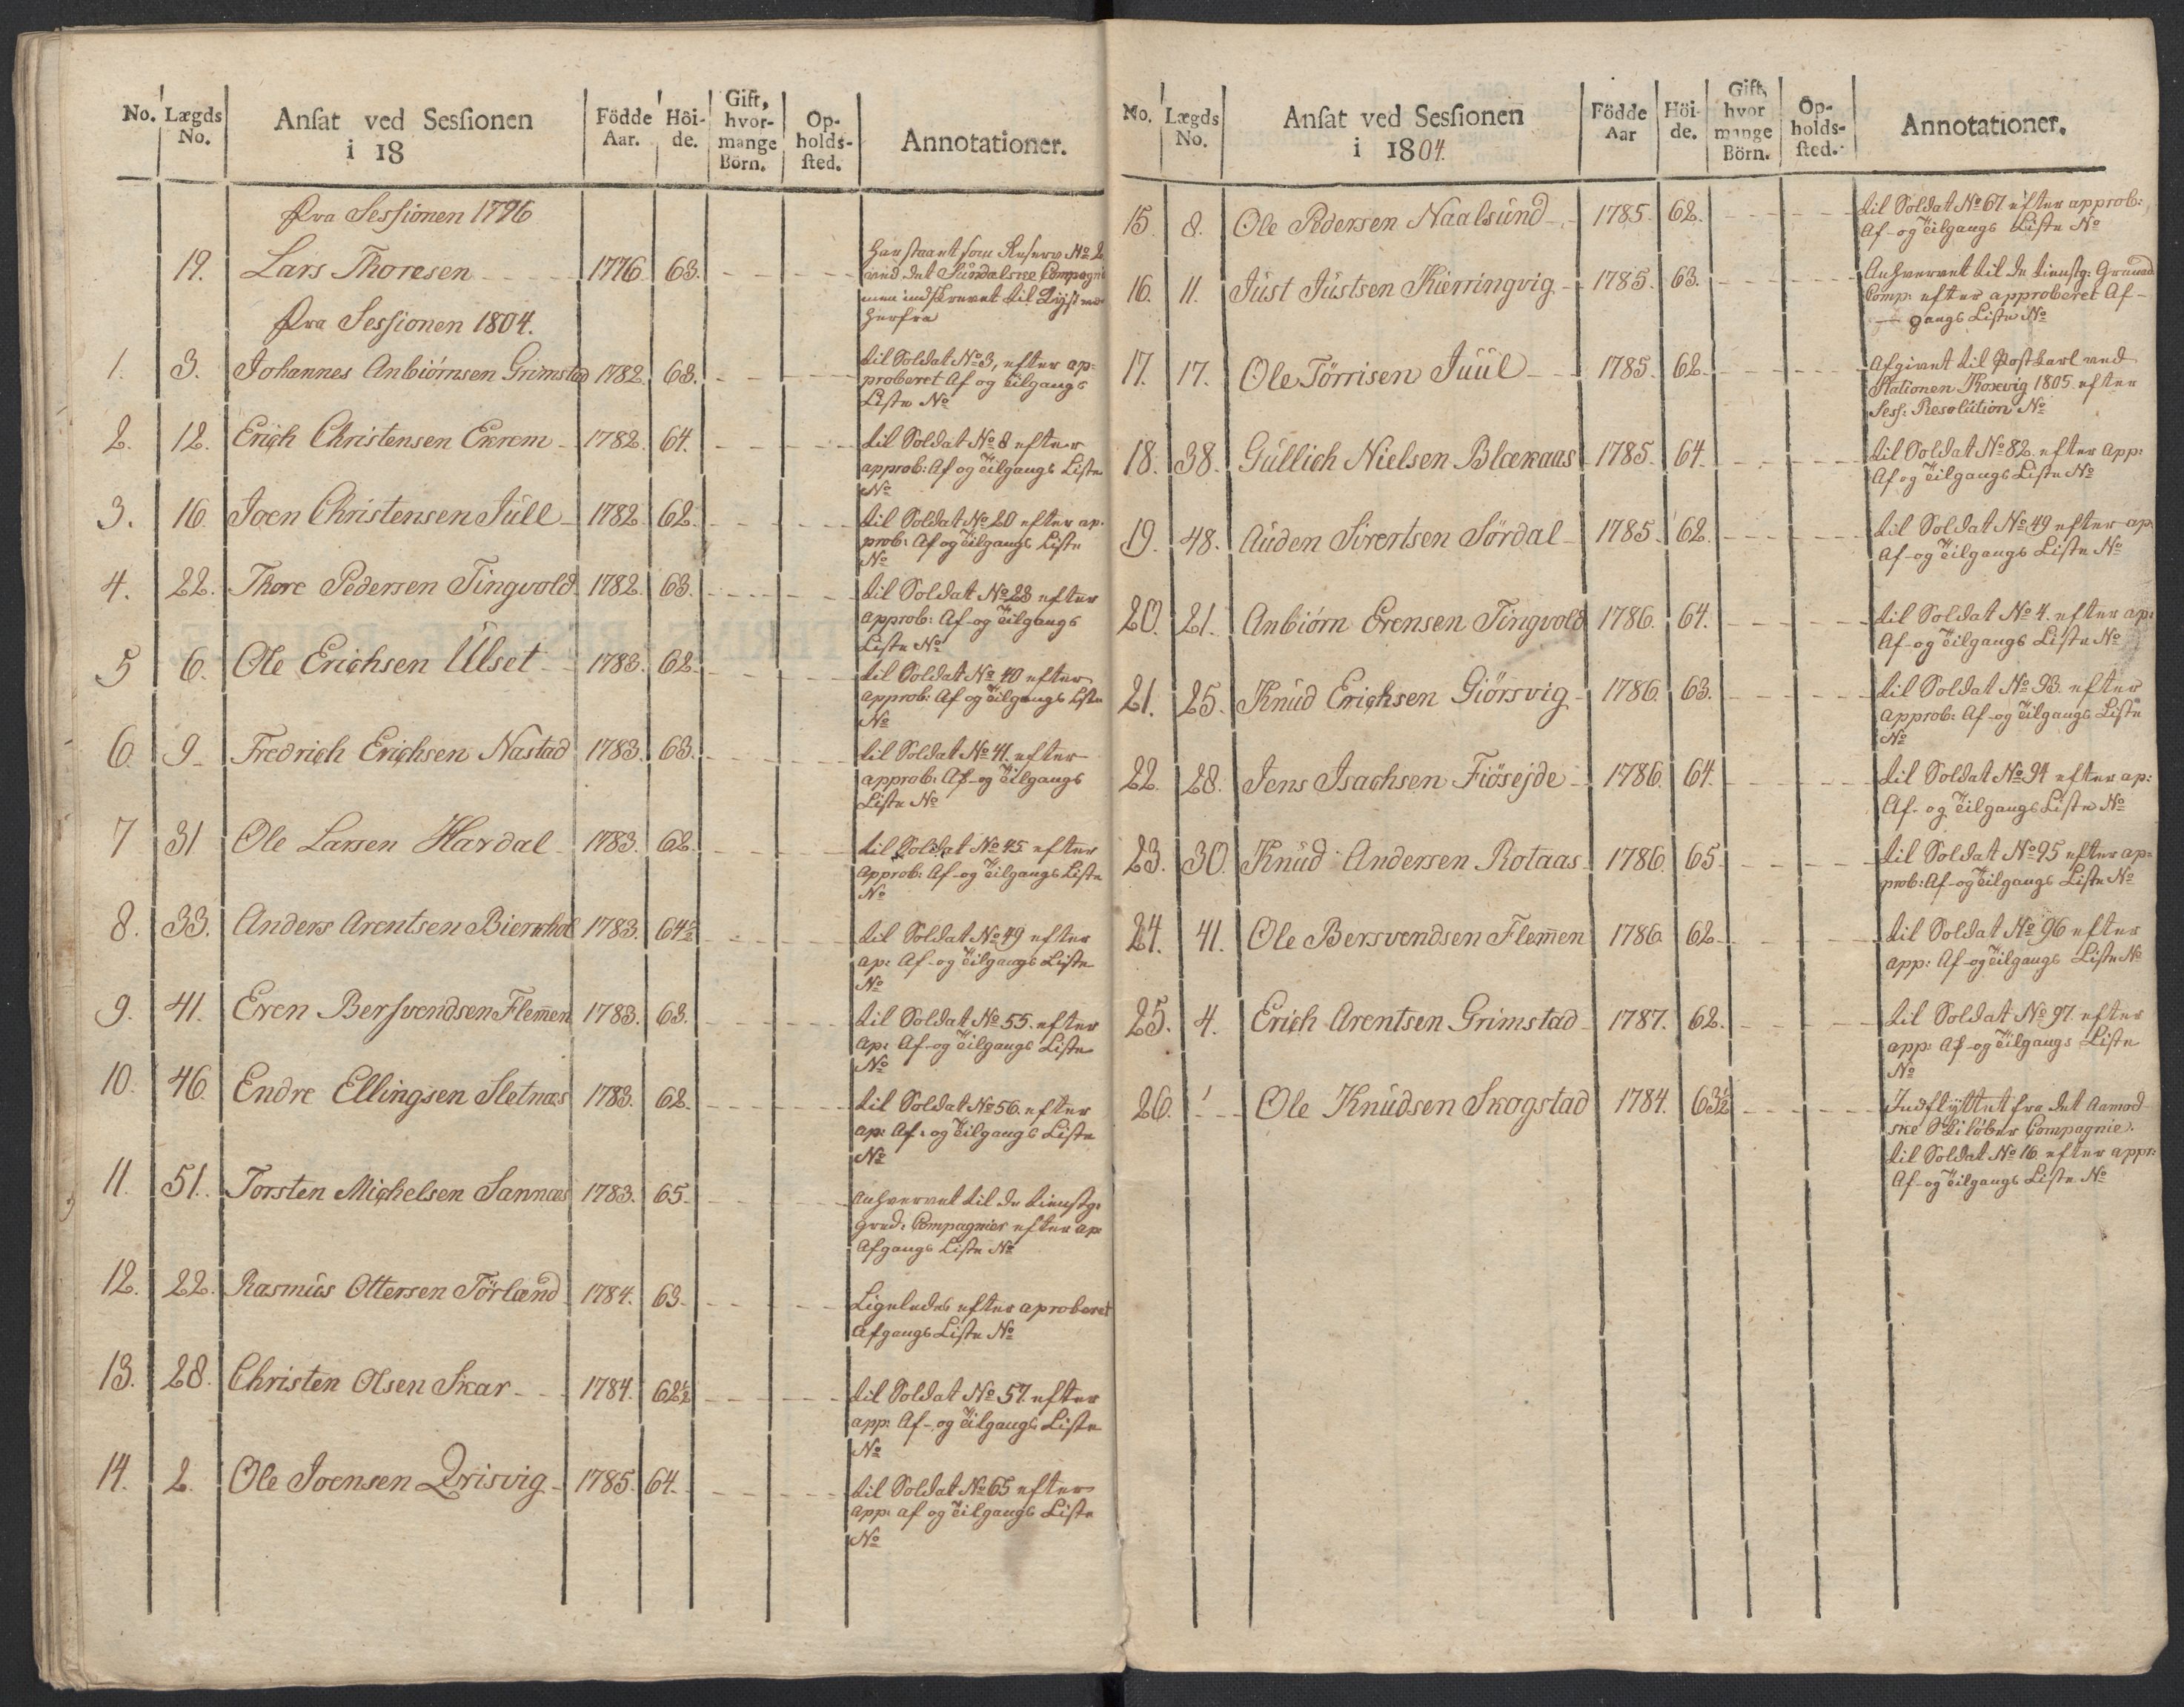 No. Lægds No. Ansat ved Sessionen i 18 Födde Aar. Höi-de. Gift, hvor-mange Börn. Op-holds-sted. Annotationer.
fra Sessionen 1796
19. Lars Thoresen 1776. 63.
Har staaet som Reserv No 2
ved det Sundalske Compagnie
men indskrevet til
herfra
fra Sessionen 1804.
1. 3. Johannes Anbiörnsen Grimstad 1782. 63. til Soldat No 3, efter ap-
proberet Af og Tilgangs
Liste No
2. 12. Erich Christensen Ekrem 1782. 64. til Soldat No 8 efter
approb: Af og Tilgangs Liste
No
3. 16. Joen Christensen Jull 1782. 62. til Soldat No 20 efter ap-
prob: Af og Tilgangs Liste
No
4. 22. Thore Pedersen Tingvold 1782. 63. til Soldat No 23 efter
approb: Af- og Tilgangs
Liste No
5 6. Ole Erichsen Ulset 1783. 62. til Soldat No 40 efter
approb: Af og Tilgangs Liste
No
6. 9. Fredrich Erichsen Nastad 1783. 63. til Soldat No 41. efter
approb: Af- og Tilgangs
Liste No
7 31 Ole Larsen Hardal 1783. 62. til Soldat No 45 efter
approb: Af- og Tilgangs Liste
No
8. 33. Anders Arentsen Biernhol 1783. 64½ til Soldat No 49 efter
ap: Af- og Tilgangs Liste
No
9. 41. Even Bersvendsen Flem̄en 1783. 63. til Soldat No 55. efter
ap: Af- og Tilgangs Liste
No
10. 46. Endre Ellingsen Sletnæs 1783. 62. til Soldat No 56. efter
ap: Af- og Tilgangs Liste
No
11. 51. Torsten Michelsen Sannæs 1783. 65. anhvervet til de tienstg:
gred: Compagnier efter ap:
Afgangs Liste No
12. 22. Rasmus Ottersen Törland 1784. 63. Ligeledes efter aproberet
Afgangs Liste No
13. 28. Christen Olsen Skar 1784. 62½ til Soldat No 57. efter
app: Af- og Tilgangs Liste
No
14. 2. Ole Joensen Qvisvig 1785. 64. til Soldat No 65 efter
app: af og Tilgangs Liste
No
No. Lægds No. Ansat ved Sessionen i 1804. Födde Aar Höi-de. Gift, hvor mange Börn. Op-holds-sted. Annotationer.
15. 8. Ole Pedersen Naalsund 1785. 62. til Soldat No 67 efter approb:
Af- og Tilgangs Liste No
16. 11. Just Justsen Kierringvig 1785. 63. Anhvervet til de tienstg: Granad
Comp: efter approberet Af-
gangs Liste No
17. 17. Ole Törrisen Juul 1785. 62. Afgivet til Postkarl ved
Stationen Koxvig 1805. efter
Sess: Resolution No
18. 38. Gullich Nielsen Blækaas 1785. 64. til Soldat No 82. efter App:
Af og Tilgangs Liste No
19. 48. Auden Sivertsen Sördal 1785. 62. til Soldat No 49 efter ap:
Af- og Tilgangs Liste No
20. 21. Anbiörn Evensen Tingvold 1786. 64. til Soldat No 4. efter ap:
Af- og Tilgangs Liste No
21. 25. Knud Erichsen Giörsvig 1786. 63. til Soldat No 93. efter
approb: Af- og Tilgangs Liste
No
22. 28. Jens Isachsen Fiösejde 1786. 64. til Soldat No 94 efter ap:
Af- og Tilgangs Liste No
23. 30. Knud Andersen Rotaas 1786. 65. til Soldat No 95 efter ap-
prob: Af- og Tilgangs Liste No
24. 41. Ole Bersvendsen Flem̄en 1786. 62. til Soldat No 96 efter
app: Af- og Tilgangs Liste No
25. 4. Erich Arentsen Grimstad 1787. 62. til Soldat No 97. efter
app: Af- og Tilgangs Liste
No
26. 1 Ole Knudsen Skogstad 1784. 63½ Indflyttet fra det Aamod-
ske Skilöber Compagnie.
til Soldat No 16 efter appr:
Af- og Tilgangs Liste No